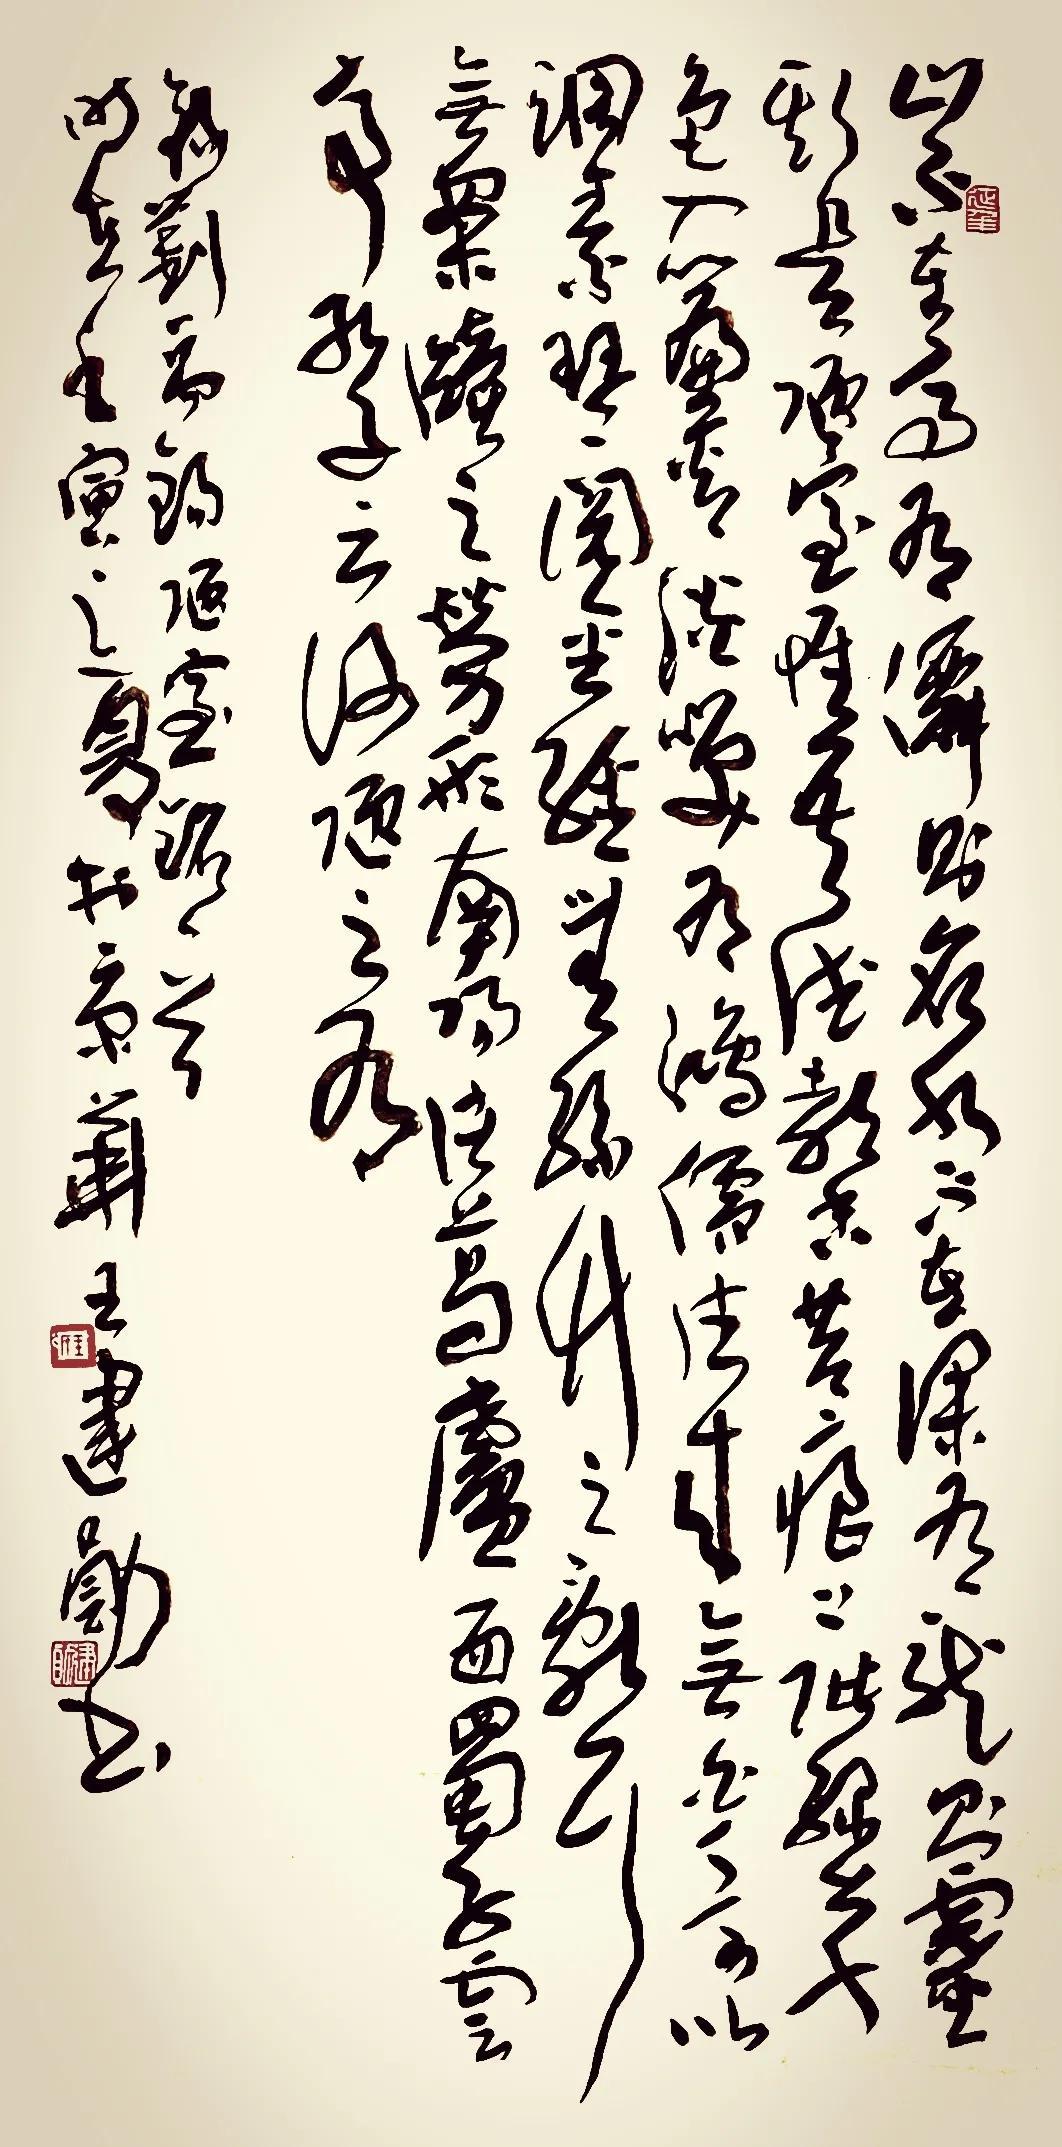 山不在高有僊則名水不在深有龍則靈
斯是陋室惟吾德馨苔痕上階綠草
色入簾青談笑有鴻儒往來無白丁可以
調素琴閱金經無絲竹之亂耳
無案牘之勞形南陽諸葛廬西蜀子雲
亭孔子云何陋之有
錄劉禹錫陋室銘一首
時在壬寅之夏於京華王建勛書